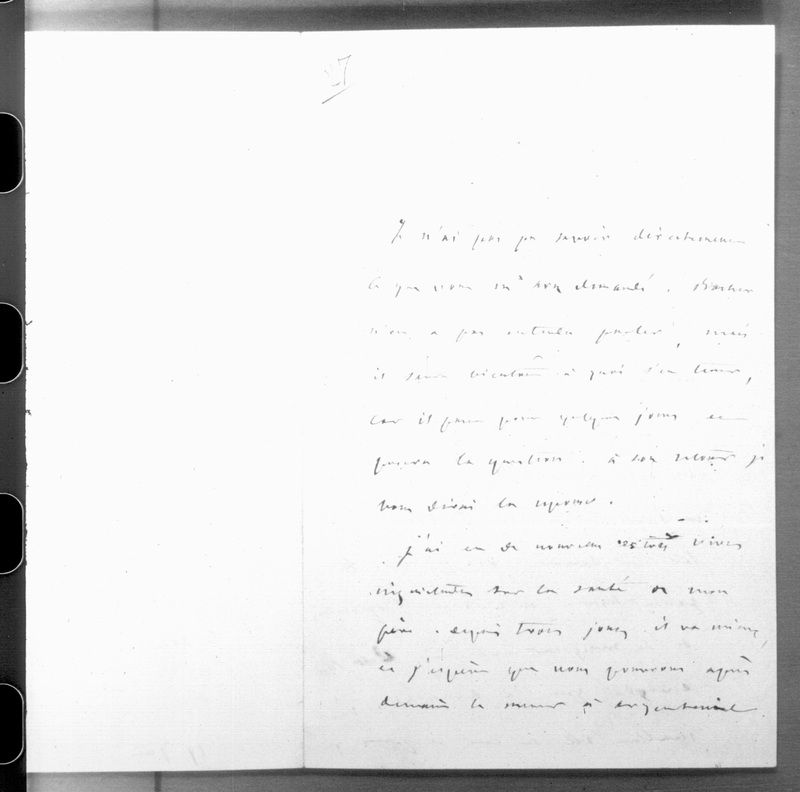 27
Je n'ai pas pu savoir directement
ce que vous m'avez demandé.
n'en a pas entendu parler, mais
il saura bientôt à quoi s'en tenir,
car il part pour quelques jours et
posera la question. à son retour je
vous dirai la réponse.
j'ai eu de nouveau de très vives
inquiétudes sur la santé de mon
père. depuis trois jours il va mieux,
et j'espère que nous pourrons après
demain le mener à argenteuil